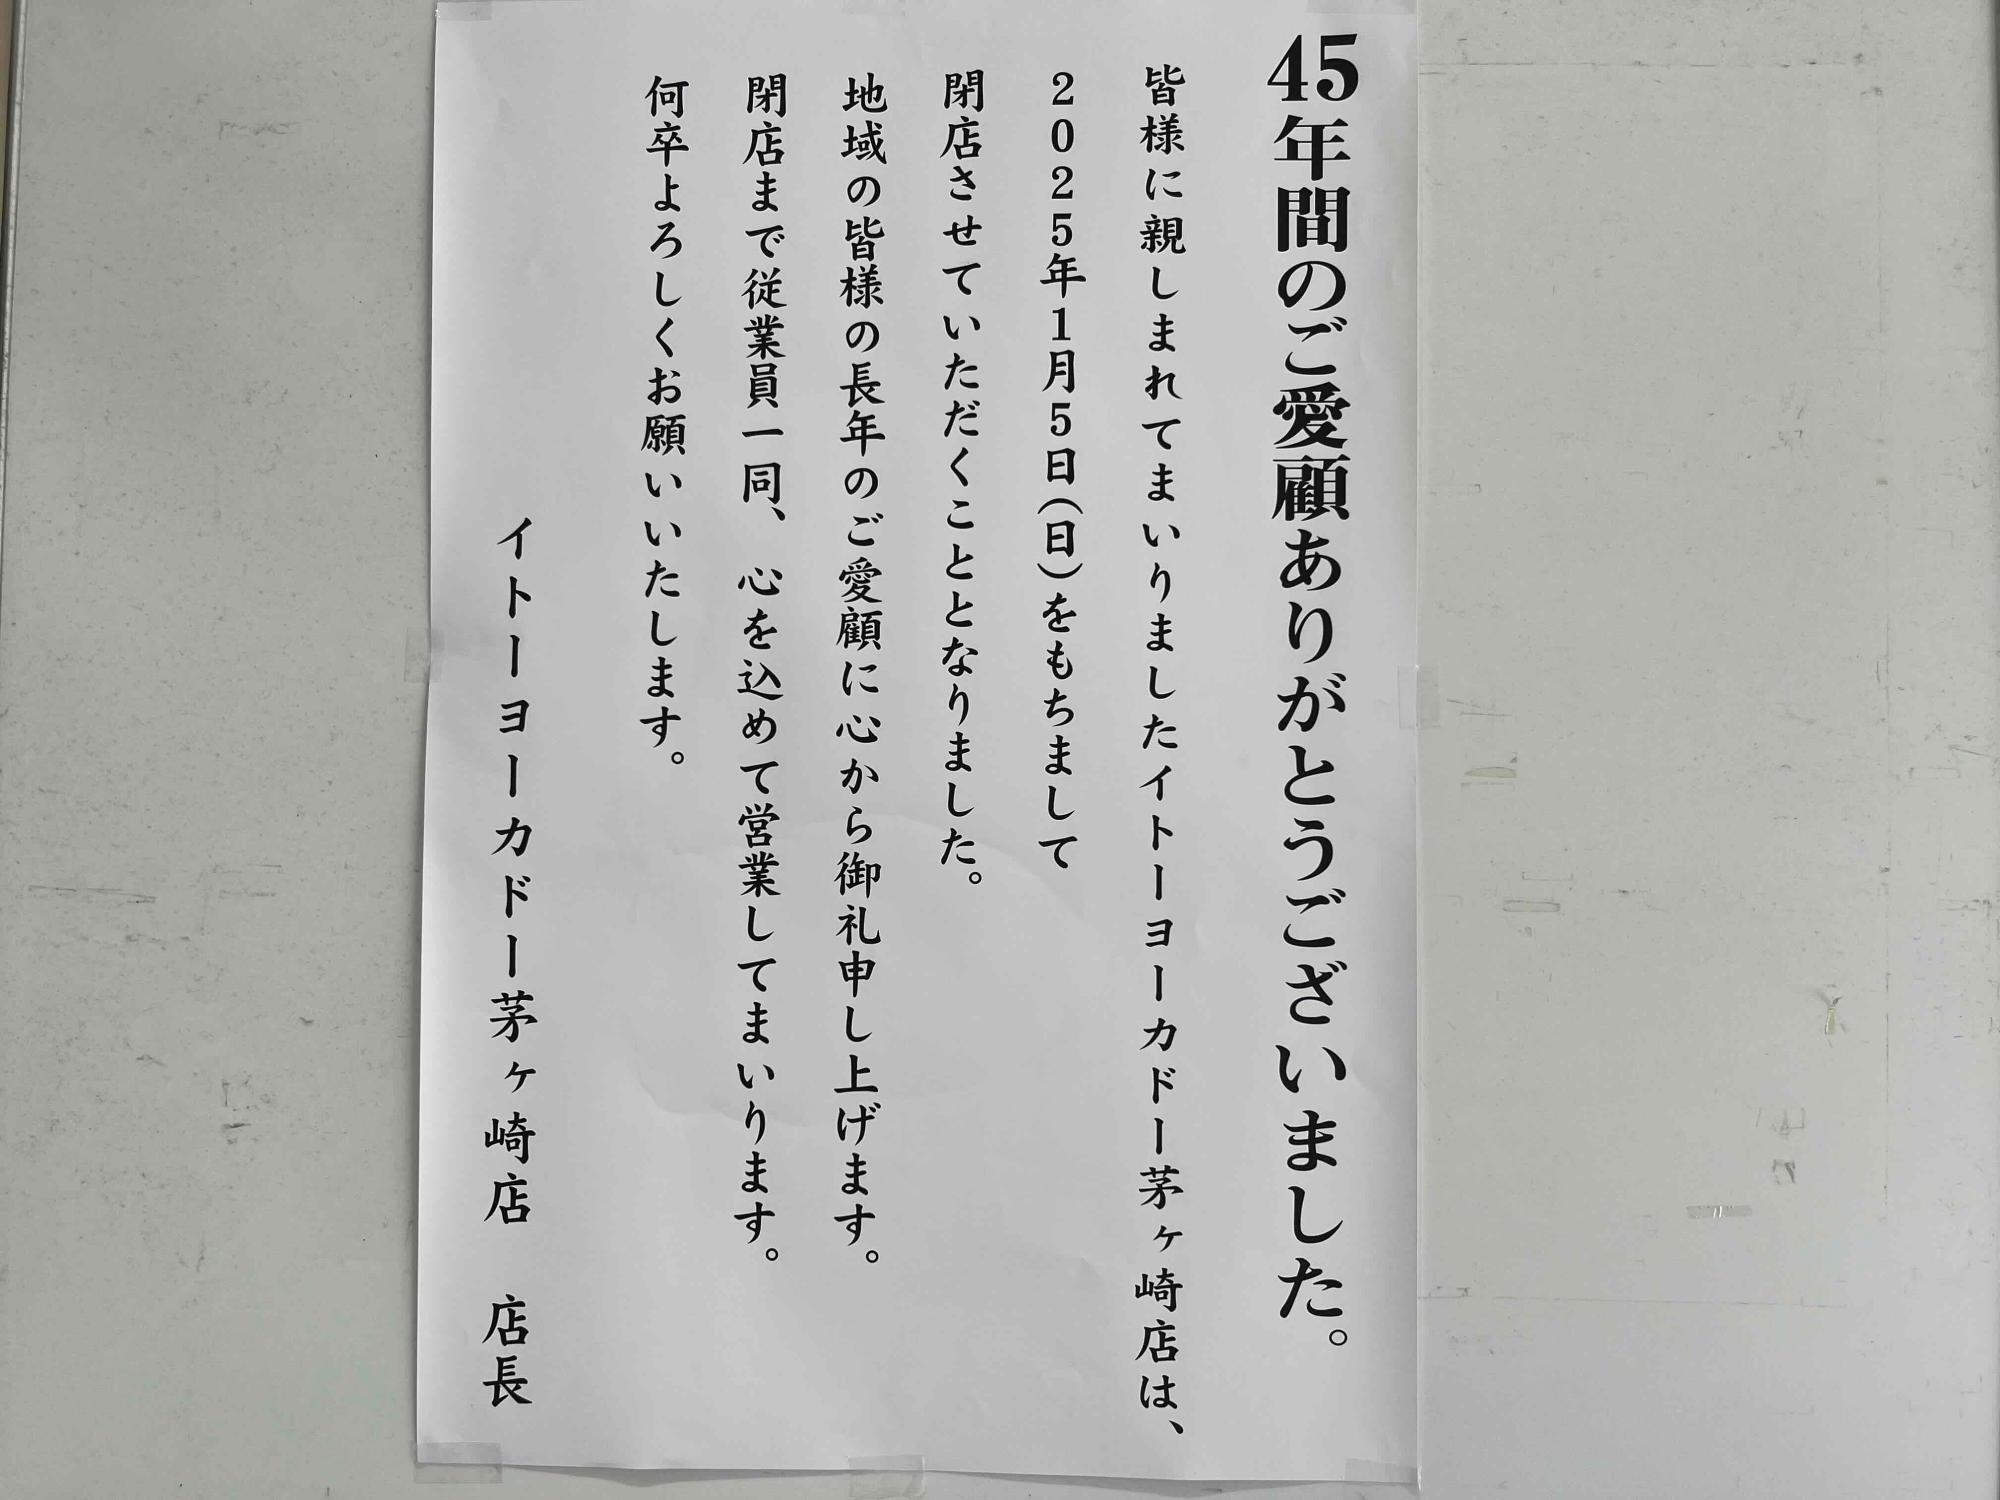 45年間のご愛顧ありがとうございました。
皆様に親しまれてまいりましたイトーヨーカドー茅ヶ崎店は、
2025年1月5日(日)をもちまして
閉店させていただくこととなりました。
地域の皆様の長年のご愛顧に心から御礼申し上げます。
閉店まで従業員一同、心を込めて営業してまいります。
何卒よろしくお願いいたします。
イトーヨーカドー茅ヶ崎店 店長